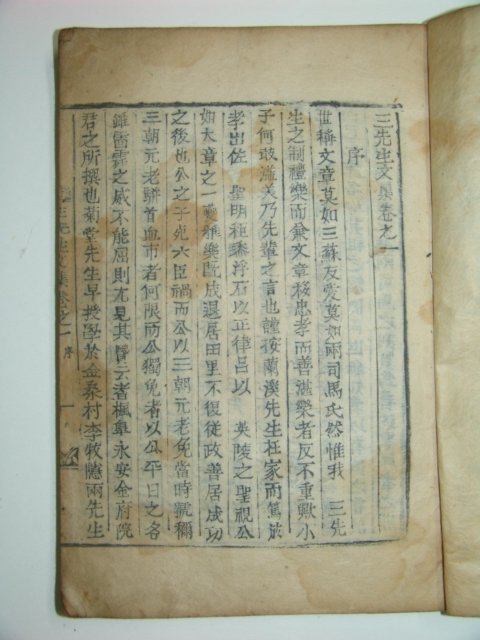 三先生文集卷之一
序
世稱文章莫如三蘇友愛莫如兩司馬氏然惟我 三先
生之制禮樂而兼文章移忠孝而善樂者反不重歟小
子何敢溢美乃先輩之言也謹按蘭溪先生在家而篤於
孝出佐 聖明秬黍浮石以正律呂以 英陵之聖視公
如大章之一夔雅樂旣成退居田里不復從政善居成功
之後也公之子死六臣禍而公以三朝元老免當時就禰
三朝元老騈首血市者何限而公獨免者以公平日之名
雖雷霆之威不能屈則尤見其賢云者楓皐永安金府院
君之所撰也菊堂先生早授學於金桑村李牧隱兩先生
三先生文集卷之一 序 一